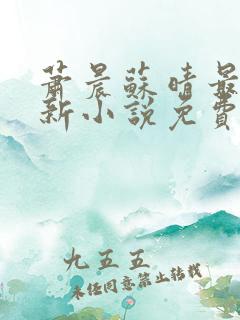 蕭晨蘇晴最
新小說免費
九五五
未经同意禁止转载